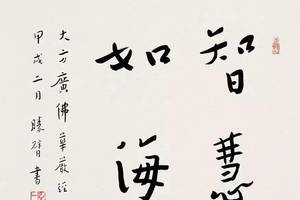 智慧
如海
大方廣佛華嚴經
甲戌二月
書